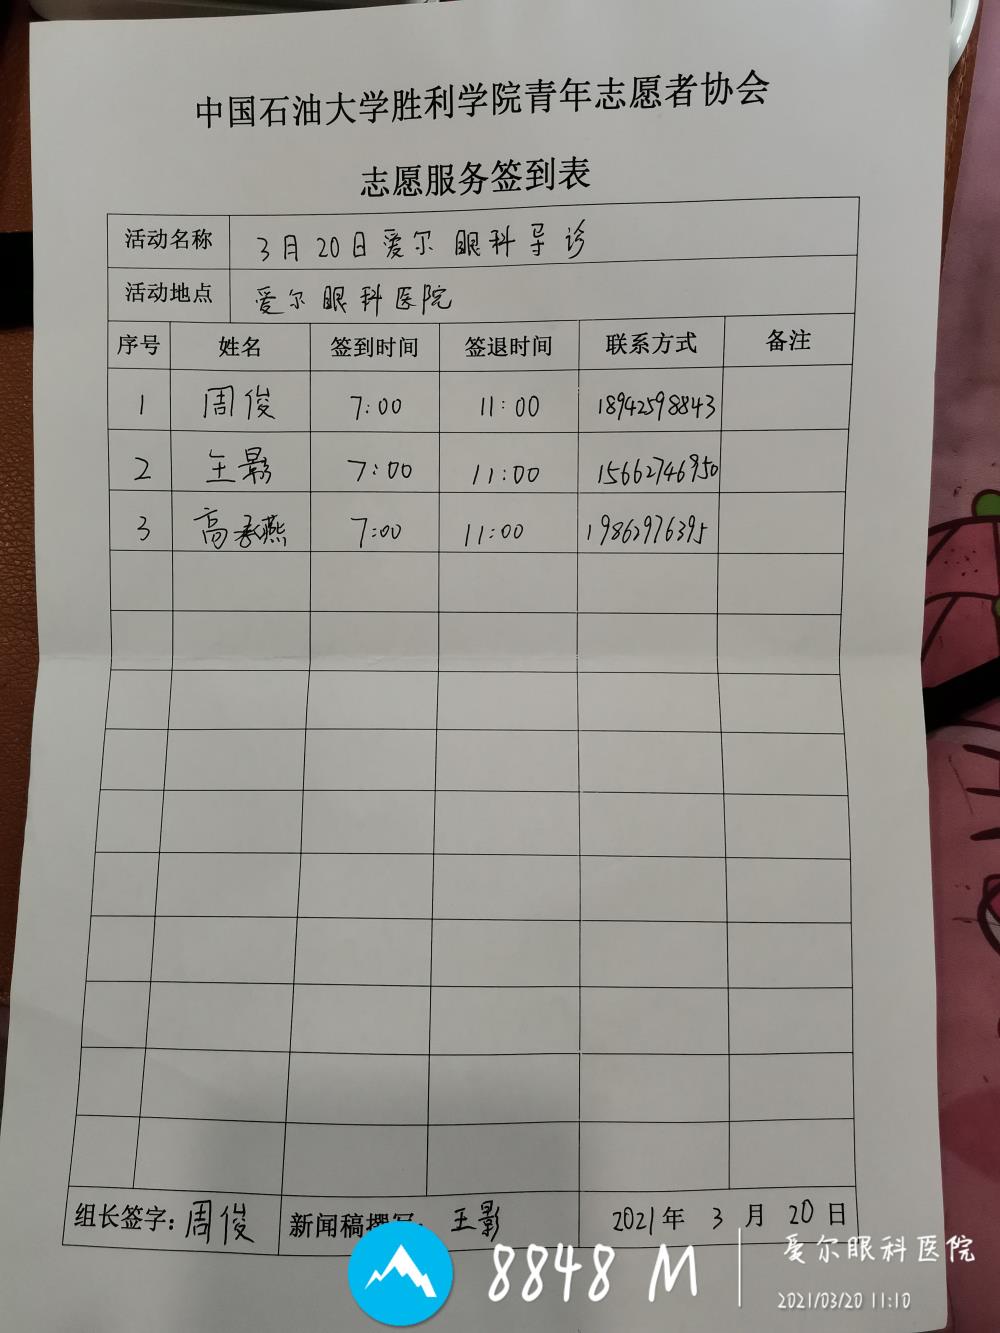 中国石油大学胜利学院青年志愿者协会
志愿服务签到表
活动名称 3月20日爱尔眼科导诊
活动地点 爱尔眼科医院
序号 姓名 签到时间 签退时间 联系方式 备注
1 周俊 7:00 11:00 18942598843
2 王影 7:00 11:00 15662746950
3 高承燕 7:00 11:00 19862976395
组长签字:周俊 新闻稿撰写: 王影 2021年 3 月 20 日
8848 M
爱尔眼科医院
2021/03/20 11:10